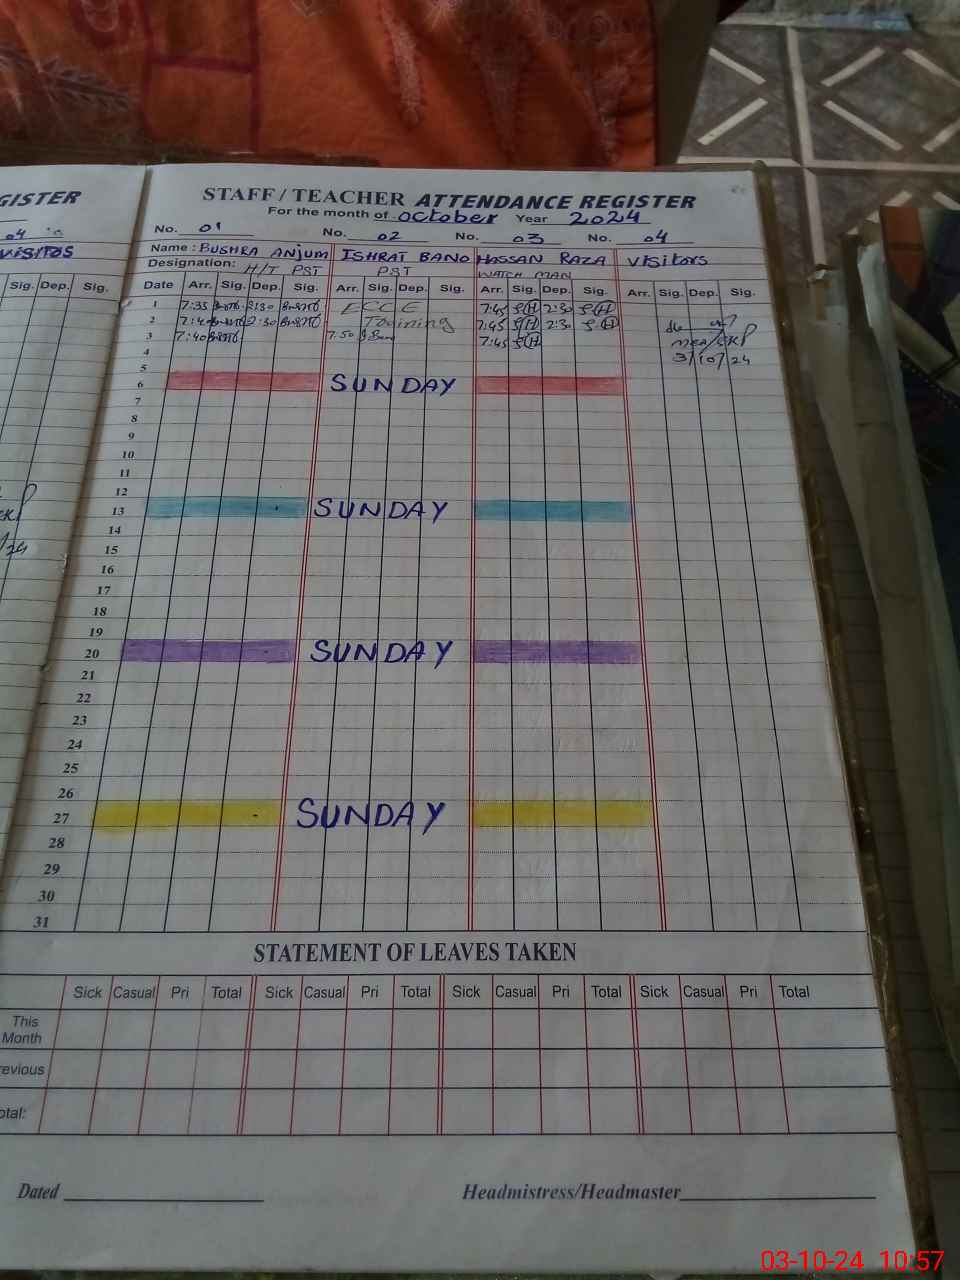 GISTER
04
visitos
Sig. Dep. Sig.
STAFF / TEACHER ATTENDANCE REGISTER
For the month of October Year 2024
No. 01 No. 02 No. 03 No. 04
Name : BUSHRA ANJUM ISHRAT BANO HASSAN RAZA visitors
Designation: H/T PST PST WATCH MAN
Date Arr. Sig. Dep. Sig. Arr. Sig. Dep. Sig. Arr. Sig. Dep. Sig. Arr. Sig. Dep. Sig.
1 7:35 2:30 ECCE 7:45 2:30
2 2:30 Training 7:45 2:30
3 7:40 7:50 7:45
4 3/10/24
5
6 SUNDAY
7
8
9
10
11
12
13 SUNDAY
14
15
16
17
18
19
20 SUNDAY
21
22
23
24
25
26
27 SUNDAY
28
29
30
31
STATEMENT OF LEAVES TAKEN
Sick Casual Pri Total Sick Casual Pri Total Sick Casual Pri Total Sick Casual Pri Total
This
Month
revious
otal:
Dated Headmistress/Headmaster
03-10-24 10:57